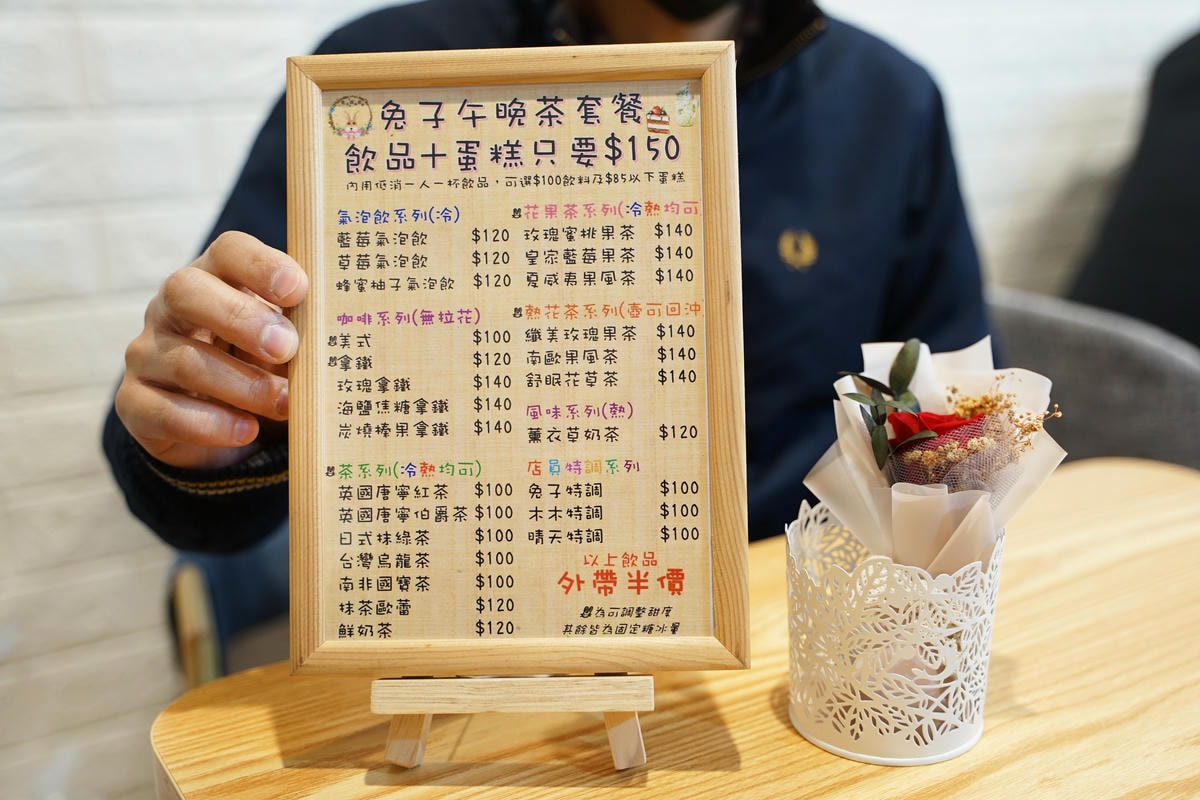 兔子午晚茶套餐
飲品+蛋糕只要$150
內用低消一人一杯飲品，可選$100飲料及$85以下蛋糕
氣泡飲系列(冷)
藍莓氣泡飲 $120
草莓氣泡飲 $120
蜂蜜柚子氣泡飲 $120
咖啡系列(無拉花)
美式 $100
拿鐵 $120
玫瑰拿鐵 $140
海鹽焦糖拿鐵 $140
炭燒榛果拿鐵 $140
茶系列(冷熱均可)
英國唐寧紅茶 $100
英國唐寧伯爵茶 $100
日式抹綠茶 $100
台灣烏龍茶 $100
南非國寶茶 $100
抹茶歐蕾 $120
鮮奶茶 $120
花果茶系列(冷熱均可
玫瑰蜜桃果茶 $140
皇家藍莓果茶 $140
夏威夷果風茶 $140
熱花茶系列(壺可回沖
纖美玫瑰果茶 $140
南歐果風茶 $140
舒眠花草茶 $140
風味系列(熱)
薰衣草奶茶 $120
店員特調系列
兔子特調 $100
木木特調 $100
晴天特調 $100
以上飲品
外帶半價
為可調整甜度
其餘皆為固定糖冰量